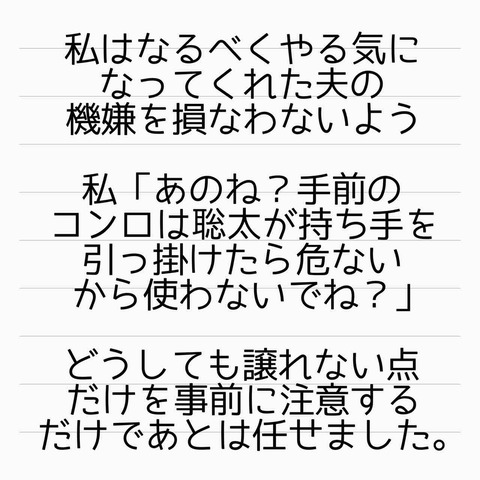 私はなるべくやる気に
なってくれた夫の
機嫌を損なわないよう
私「あのね？手前の
コンロは聡太が持ち手を
引っ掛けたら危ない
から使わないでね？」
どうしても譲れない点
だけを事前に注意する
だけであとは任せました。